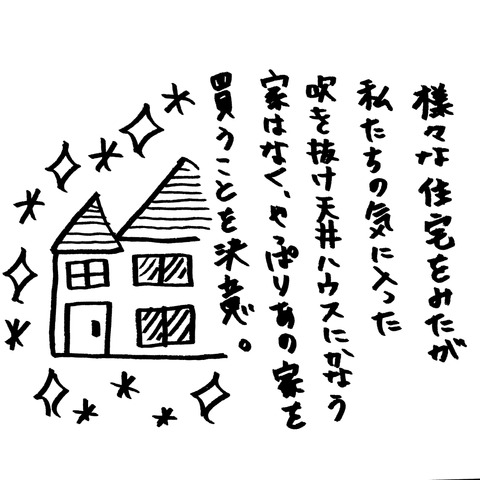 様々な住宅をみたが
私たちの気に入った
吹き抜け天井ハウスにかなう
家はなく、やっぱりあの家を
買うことを決意。